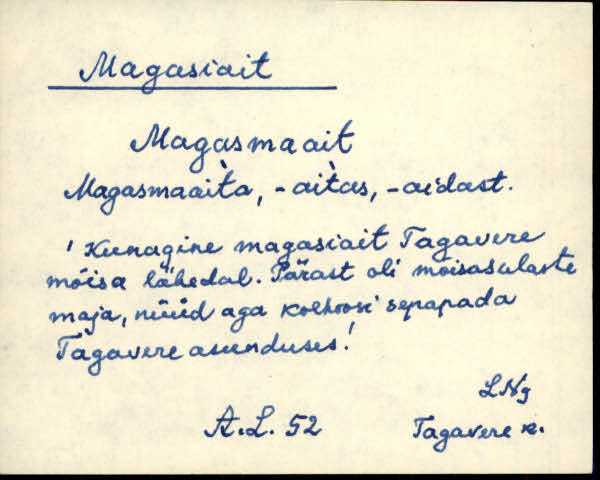 Magasiait
Magasmaait
Magasmaaìta, -aìtas, -aidast.
' Kunagine magasiait Tagavere
mõisa lähedal. Pärast oli moisasulaste
maja, nüüd aga kolhoosi sepapada
Tagavere asunduses!
LNg
A.L. 52
Tagavere k.